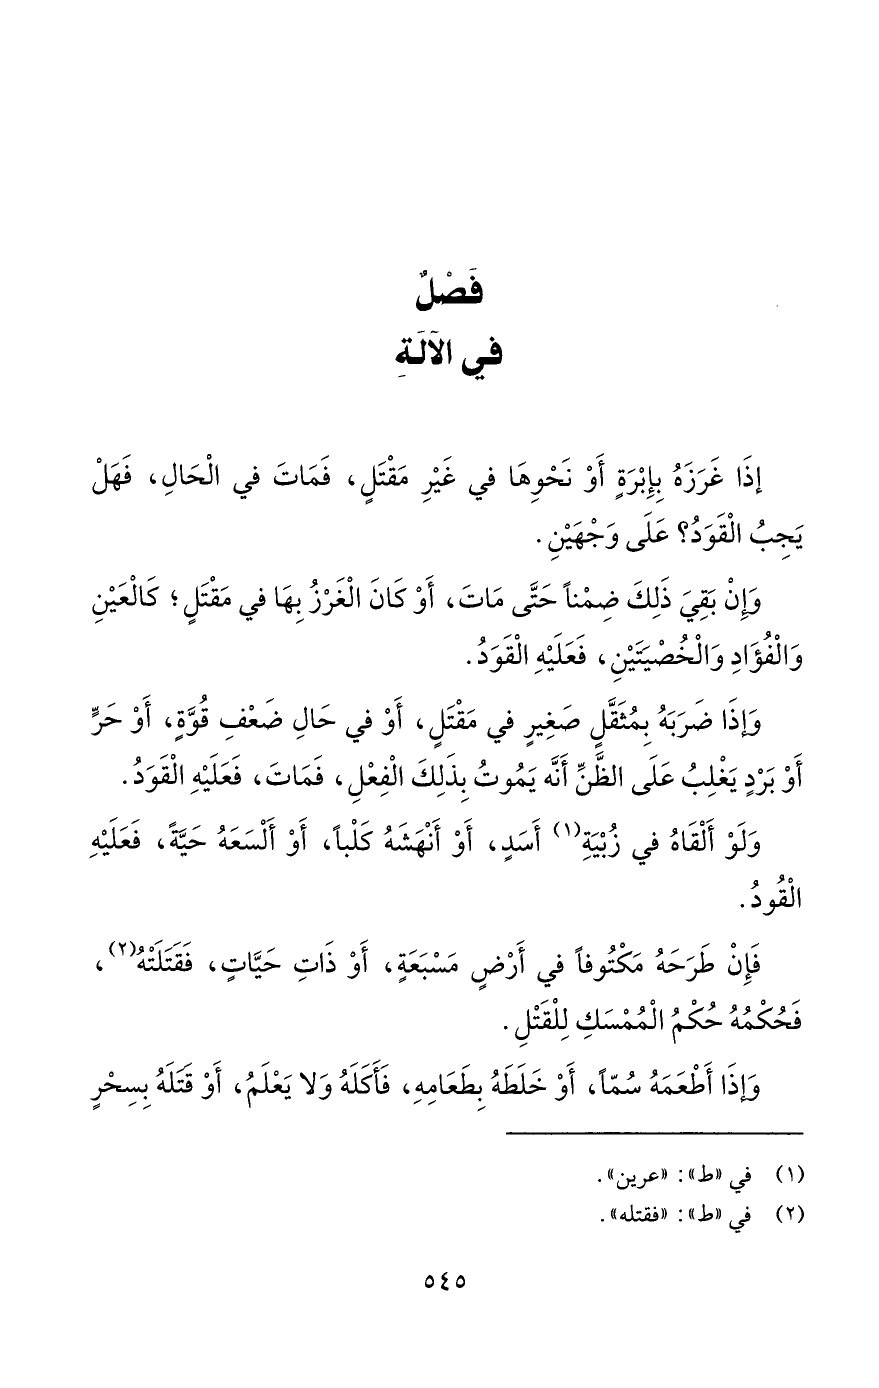 فَصْلٌ
في الآلَةِ
إذَا غَرَزَهُ بِإِبْرَةٍ أَوْ نَحْوِهَا في غَيْرِ مَقْتَلٍ، فَمَاتَ في الْحَالِ، فَهَلْ
يَجِبُ الْقَوَدُ؟ عَلَى وَجْهَيْنِ.
وَإِنْ بَقِيَ ذَلِكَ ضِمْناً حَتَّى مَاتَ، أَوْ كَانَ الْغَرْزُ بِهَا في مَقْتَلٍ؛ كَالْعَيْنِ
وَالْفُؤَادِ وَالْخُصْيَتَيْنِ، فَعَلَيْهِ الْقَوَدُ.
وَإِذَا ضَرَبَهُ بِمُثَقَّلٍ صَغِيرٍ في مَقْتَلٍ، أَوْ في حَالِ ضَعْفِ قُوَّةٍ، أَوْ حَرٍّ
أَوْ بَرْدٍ يَغْلِبُ عَلَى الظَّنِّ أَنَّه يَمُوتُ بِذَلِكَ الْفِعْلِ، فَمَاتَ، فَعَلَيْهِ الْقَوَدُ.
وَلَوْ أَلْقَاهُ في زُبْيَةِ(١) أَسَدٍ، أَوْ أَنْهَشَهُ كَلْباً، أَوْ أَلْسَعَهُ حَيَّةً، فَعَلَيْهِ
الْقُودُ.
فَإِنْ طَرَحَهُ مَكْتُوفاً في أَرْضٍ مَسْبَعَةٍ، أَوْ ذَاتِ حَيَّاتٍ، فَقَتَلَتْهُ(٢)،
فَحُكْمُهُ حُكْمُ الْمُمْسَكِ لِلْقَتْلِ.
وَإِذَا أَطْعَمَهُ سُمّاً، أَوْ خَلَطَهُ بِطَعَامِهِ، فَأَكَلَهُ وَلا يَعْلَمُ، أَوْ قَتَلَهُ بِسِحْرٍ
(١) في «ط»: «عرين».
(٢) في «ط»: «فقتله».
٥٤٥